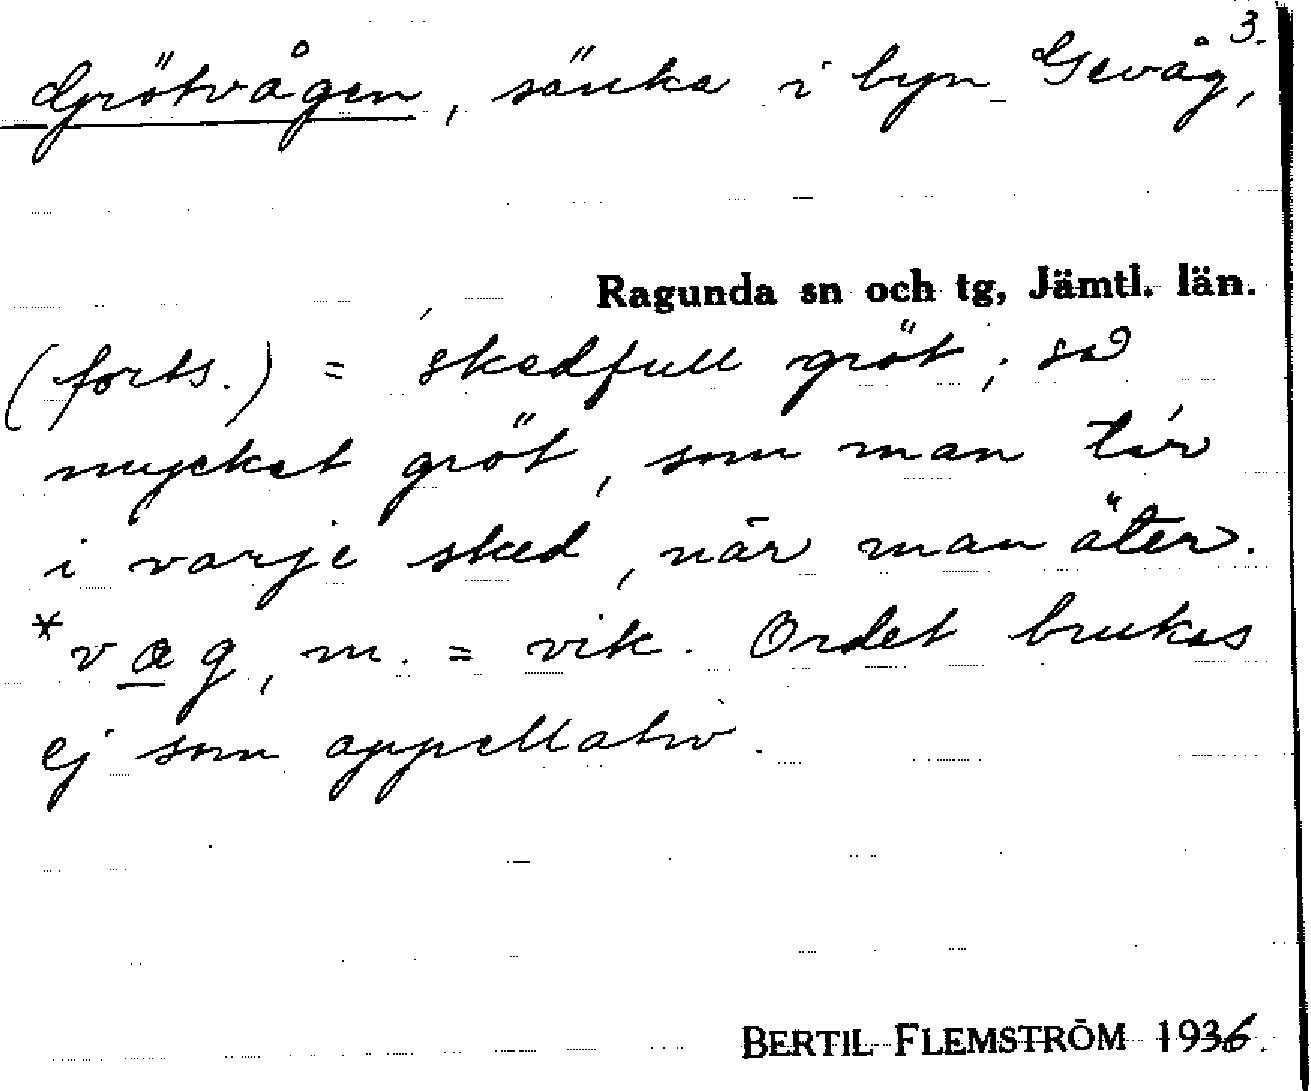 3.
Grötvågen, sänka i byn Gevåg,
Ragunda sn och tg, Jämtl. län.
(forts.) = skedfull gröt; så
mycket gröt, som man tar
i varje sked, när man äter.
*væg, m. = vik. Ordet brukas
ej som appellativ.
BERTIL FLEMSTRÖM 1936.